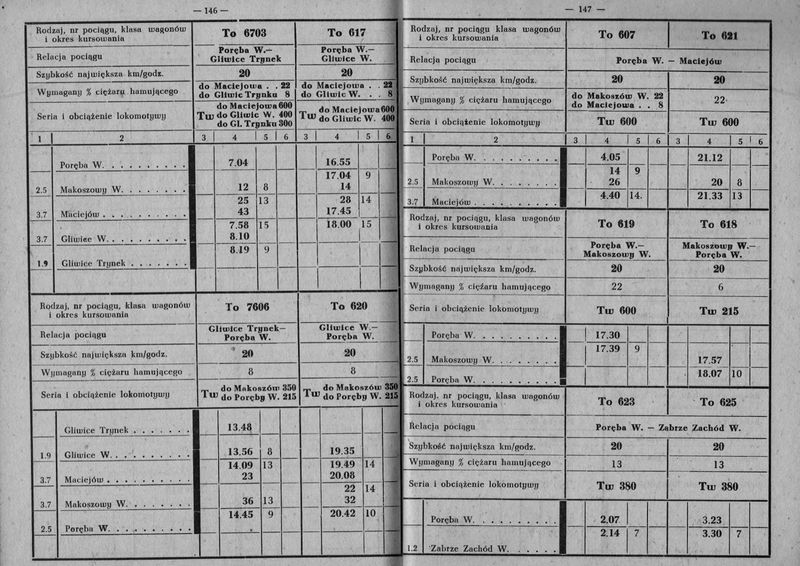 — 146 —
Rodzaj, nr pociągu, klasa wagonów i okres kursowania To 6703 To 617
Relacja pociągu Poręba W.— Gliwice Trynek Poręba W.— Gliwice W.
Szybkość największa km/godz. 20 20
Wymagany % ciężaru hamującego do Maciejowa . . 22 do Gliwic Trynku 8 do Maciejowa . . 22 do Gliwic W. . . 8
Seria i obciążenie lokomotywy Tw do Maciejowa 600 do Gliwic W. 400 do Gl. Trynku 300 Tw do Maciejowa 600 do Gliwic W. 400
1 2 3 4 5 6 3 4 5 6
Poręba W. . . . . . . . . . 7.04 16.55
17.04 9
2.5 Makoszowy W. . . . . . . . 12 8 14
25 13 28 14
3.7 Maciejów . . . . . . . . . 43 17.45
7.58 15 18.00 15
3.7 Gliwice W. . . . . . . . . 8.10
8.19 9
1.9 Gliwice Trynek . . . . . . .
Rodzaj, nr pociągu, klasa wagonów i okres kursowania To 7606 To 620
Relacja pociągu Gliwice Trynek— Poręba W. Gliwice W.— Poręba W.
Szybkość największa km/godz. 20 20
Wymagany % ciężaru hamującego 8 8
Seria i obciążenie lokomotywy Tw do Makoszów 350 do Poręby W. 215 Tw do Makoszów 350 do Poręby W. 215
Gliwice Trynek . . . . . . . 13.48
1.9 Gliwice W. . . . . . . . . 13.56 8 19.35
14.09 13 19.49 14
3.7 Maciejów . . . . . . . . . 23 20.08
22 14
3.7 Makoszowy W. . . . . . . . 36 13 32
14.45 9 20.42 10
2.5 Poręba W. . . . . . . . . .
— 147 —
Rodzaj, nr pociągu klasa wagonów i okres kursowania To 607 To 621
Relacja pociągu Poręba W. — Maciejów
Szybkość największa km/godz. 20 20
Wymagany % ciężaru hamującego do Makoszów W. 22 do Maciejowa . . 8 22
Seria i obciążenie lokomotywy Tw 600 Tw 600
1 2 3 4 5 6 3 4 5 6
Poręba W. . . . . . . . . . 4.05 21.12
14 9
2.5 Makoszowy W. . . . . . . . 26 20 8
4.40 14. 21.33 13
3.7 Maciejów . . . . . . . . .
Rodzaj, nr pociągu, klasa wagonów i okres kursowania To 619 To 618
Relacja pociągu Poręba W.— Makoszowy W. Makoszowy W.— Poręba W.
Szybkość największa km/godz. 20 20
Wymagany % ciężaru hamującego 22 6
Seria i obciążenie lokomotywy Tw 600 Tw 215
Poręba W. . . . . . . . . . 17.30
17.39 9
2.5 Makoszowy W. . . . . . . . 17.57
18.07 10
2.5 Poręba W. . . . . . . . . .
Rodzaj, nr pociągu, klasa wagonów i okres kursowania To 623 To 625
Relacja pociągu Poręba W. — Zabrze Zachód W.
Szybkość największa km/godz. 20 20
Wymagany % ciężaru hamującego 13 13
Seria i obciążenie lokomotywy Tw 380 Tw 380
Poręba W. . . . . . . . . . 2.07 3.23
2.14 7 3.30 7
1.2 Zabrze Zachód W. . . . . .